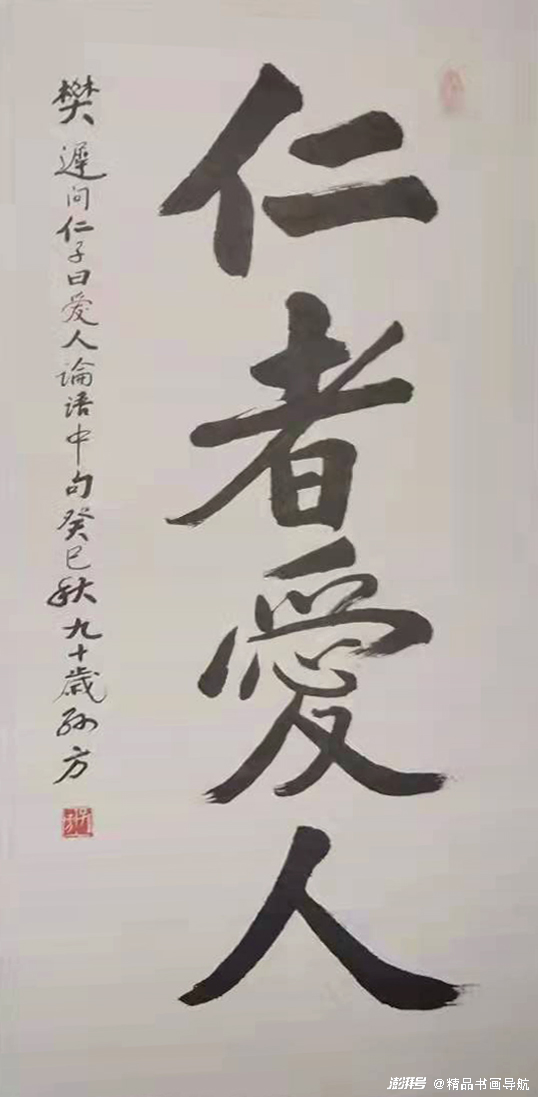 仁者愛人
樊遲问仁子曰爱人論语中句癸巳秋九十歲孙方
澎湃号 @精品书画导航